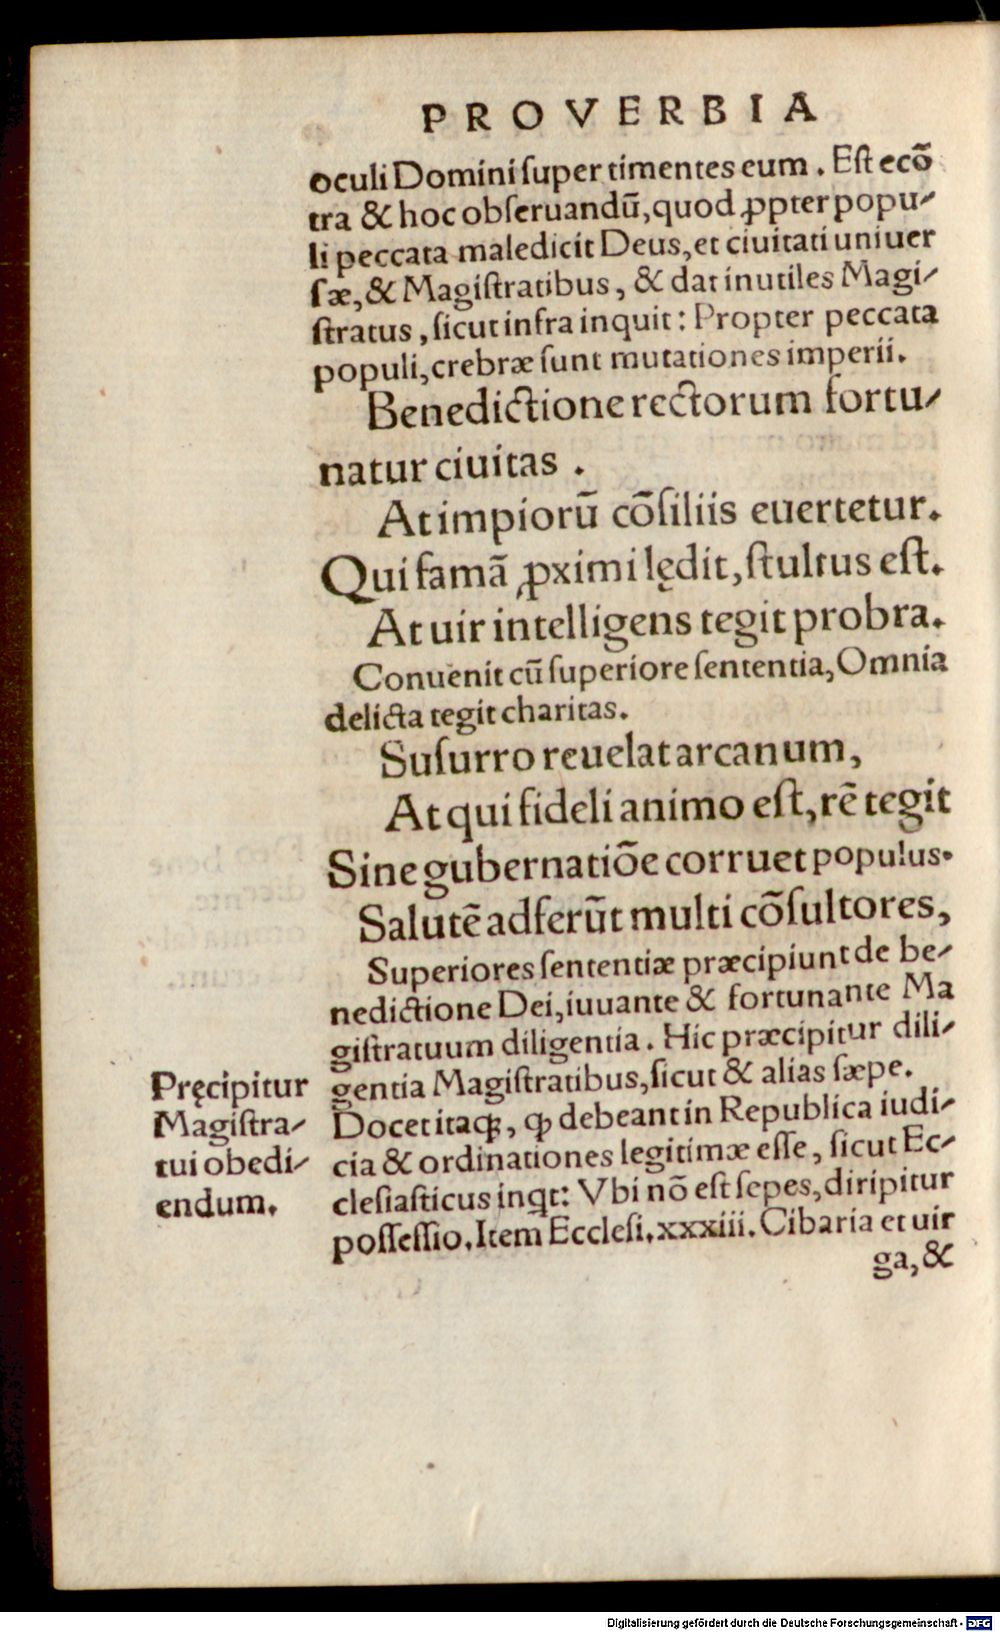 PROVERBIA
oculi Domini ſuper timentes eum. Eſt ecõ
tra & hoc obſeruandũ, quod ꝓpter popu⸗
li peccata maledicit Deus, et ciuitati uniuer
ſæ, & Magiſtratibus, & dat inutiles Magi⸗
ſtratus, ſicut infra inquit: Propter peccata
populi, crebræ ſunt mutationes imperii.
Benedictione rectorum fortu⸗
natur ciuitas.
At impiorũ cõſiliis euertetur.
Qui famã ꝓximi lędit, ſtultus eſt.
At uir intelligens tegit probra.
Conuenit cũ ſuperiore ſententia, Omnia
delicta tegit charitas.
Suſurro reuelat arcanum,
At qui fideli animo eſt, rẽ tegit
Sine gubernatiõe corruet populus.
Salutẽ adferũt multi cõſultores,
Superiores ſententiæ præcipiunt de be⸗
nedictione Dei, iuuante & fortunante Ma
giſtratuum diligentia. Hic præcipitur dili⸗
gentia Magiſtratibus, ſicut & alias ſæpe.
Pręcipitur
Magiſtra⸗
tui obedi⸗
endum.
Docet itaqꝫ, ꝙ debeant in Republica iudi⸗
cia & ordinationes legitimæ eſſe, ſicut Ec⸗
cleſiaſticus inqt: Vbi nõ eſt ſepes, diripitur
poſſeſſio. Item Eccleſi. xxxiii. Cibaria et uir
ga, &
Digitalisierung gefördert durch die Deutsche Forschungsgemeinschaft - DFG